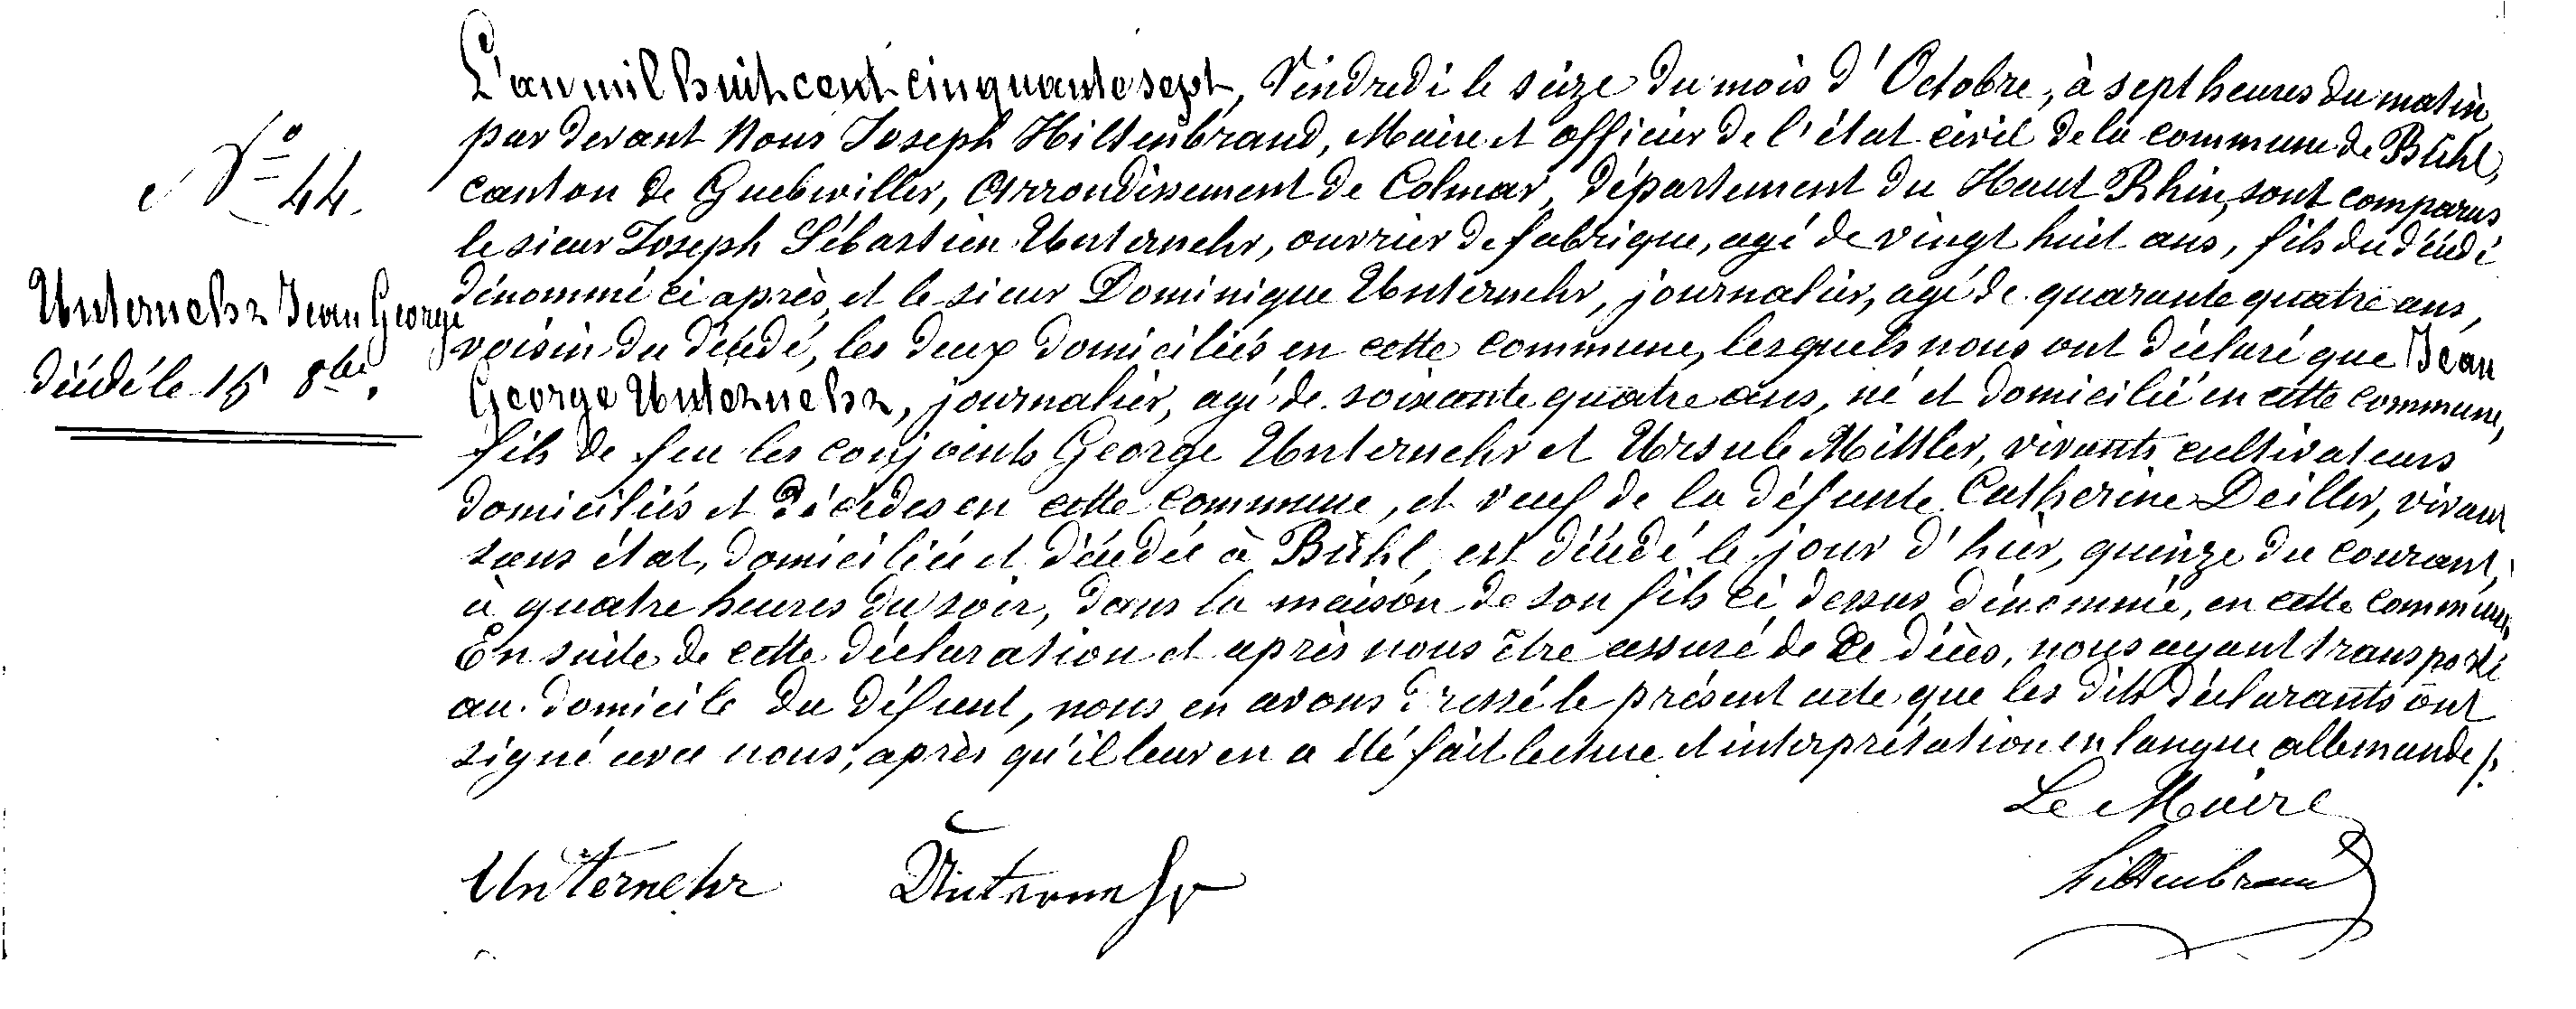 L'an mil huit cent cinquante sept, Vendredi le seize du mois d'Octobre, à sept heures du matin,
par devant Nous Joseph Hiltenbrand, Maire et officier de l'état civil de la commune de Bühl,
canton de Guebwiller, Arrondissement de Colmar, Département du Haut Rhin, sont comparus
le sieur Joseph Sébastien Unternehr, ouvrier de fabrique, agé de vingt huit ans, fils du décédé
dénommé ci après, et le sieur Dominique Unternehr, journalier, agé de quarante quatre ans,
voisin du décédé, les deux domiciliés en cette commune, lesquels nous ont déclaré que Jean
George Unternehr, journalier, agé de soixante quatre ans, né et domicilié en cette commune,
fils de feu les conjoints George Unternehr et Ursule Mittler, vivants cultivateurs
domiciliés et décédés en cette commune, et veuf de la défunte Catherine Deiller, vivant
sans état, domiciliée et décédée à Bühl, est décédé le jour d'hier, quinze du courant,
à quatre heures du soir, dans la maison de son fils ci dessus dénommé, en cette commune.
En suite de cette déclaration et après nous être assuré de ce décès, nous ayant transporté
au domicile du défunt, nous en avons dressé le présent acte que les dits déclarants ont
signé avec nous, après qu'il leur en a été fait lecture et interprétation en langue allemande /.
Le Maire
Unternehr Unternehr Hiltenbrand
N° 44.
Unternehr Jean George
décédé le 15 8bre.